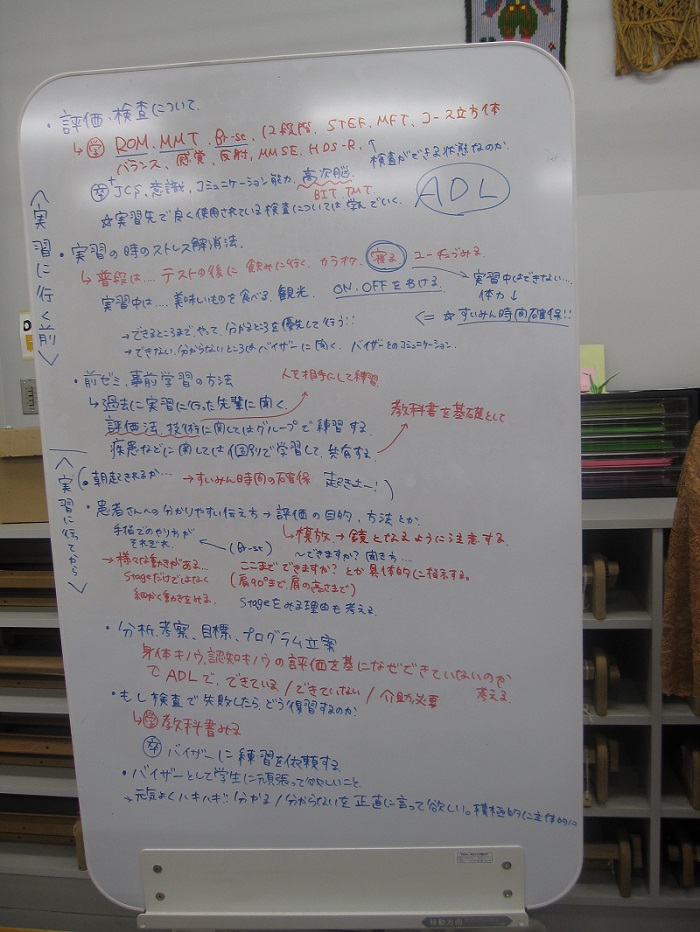 ・評価、検査について.
↳㊫ ROM、MMT、Br-se、12段階、STEF、MFT、コース立方体
バランス、感覚、反射、MMSE、HDS-R、
検査ができる状態なのか.
JCS、意識、コミュニケーション能力、高次脳.
BIT、TMT
ADL
☆実習先で良く使用されている検査については学んでいく.
<実習に行く前>
・実習の時のストレス解消法.
↳普段は… テストの後に 飲みに行く、カラオケ、寝る
実習中はできない…
体力↓
実習中は… 美味しいものを食べる、観光. ON、OFFを分ける.
⇐☆すいみん時間確保!!
→できるところまでやって、分かるところを優先して行う!!
→できない、分からないところはバイザーに聞く. バイザーとのコミュニケーション.
・前ゼミ、事前学習の方法
人を相手にして練習
↳過去に実習に行った先輩に聞く.
教科書を基礎として
評価法、技術に関してはグループで練習する.
疾患などに関しては個別で学習して、共有する
<実習に行ってから>
(・朝起きれるか… →すいみん時間の確保 起きたー!)
・患者さんへの分かりやすい伝え方→評価の目的、方法とか.
↳模放→鏡となるように注意する.
手指でのやり方が
それぞれ.
←(Br-se) 〜できますか? 聞き方…
→様々な動きがある…
ここまでできますか?とか具体的に指示する.
Stageだけではなく
(肩90°まで、肩の高さまで)
細かく動きをみる.
Stageをみる理由も考える.
・分析、考察、目標、プログラム立案
身体キノウ、認知キノウの評価を基になぜできていないのか
考える.
でADLで、できている/できていない/介助必要
・もし検査で失敗したら、どう復習するのか.
↳㊫教科書みる
バイザーに練習を依頼する
・バイザーとして学生に頑張って欲しいこと.
→元気よくハキハキ!分かる/分からないを正直に言って欲しい。積極的に主体的に